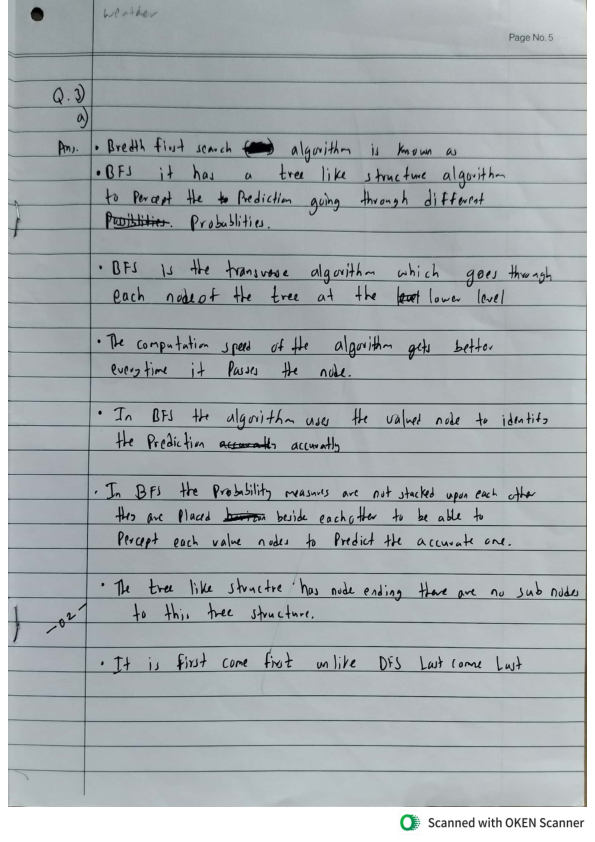 weather
Page No. 5
Q. 3)
a)
Ans. • Bredth first search algorithm is known as
• BFS it has a tree like structure algorithm
to Percept the to Prediction going through different
Posiblities. Probablities.
• BFS is the transverse algorithm which goes through
each node of the tree at the level lower level
• The computation speed of the algorithm gets better
everytime it Passes the node.
• In BFS the algorithm uses the valued node to identify
the Prediction accuratly accuratly
• In BFS the Probability measures are not stacked upon each other
they are Placed beside eachother to be able to
Percept each value nodes to Predict the accurate one.
• The tree like structre has node ending there are no sub nodes
to this tree structure.
-02-
• It is first come first unlike DFS Last come Last
Scanned with OKEN Scanner